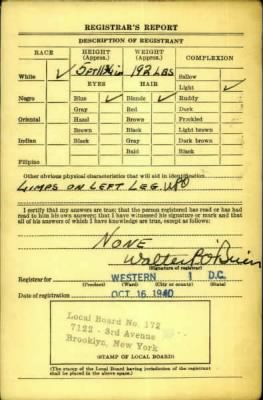 REGISTRAR'S REPORT
DESCRIPTION OF REGISTRANT
RACE HEIGHT (Approx.) WEIGHT (Approx.) COMPLEXION
5 Ft 192 LBS
White ✓ Sallow
EYES HAIR Light ✓
Negro Blue ✓ Blonde ✓ Ruddy
Gray Red Dark
Oriental Hazel Brown Freckled
Brown Black Light brown
Indian Black Gray Dark brown
Bald Black
Filipino
Other obvious physical characteristics that will aid in identification
LIMPS ON LEFT LEG.
I certify that my answers are true; that the person registered has read or has had
read to him his own answers; that I have witnessed his signature or mark and that
all of his answers of which I have knowledge are true, except as follows:
NONE
Walter O'Brien
(Signature of registrar)
Registrar for WESTERN 1 D.C.
(Precinct) (Ward) (City or county) (State)
Date of registration OCT 16 1940
Local Board No. 172
7122 - 3rd Avenue
Brooklyn, New York
(STAMP OF LOCAL BOARD)
(The stamp of the Local Board having jurisdiction of the registrant
shall be placed in the above space.)